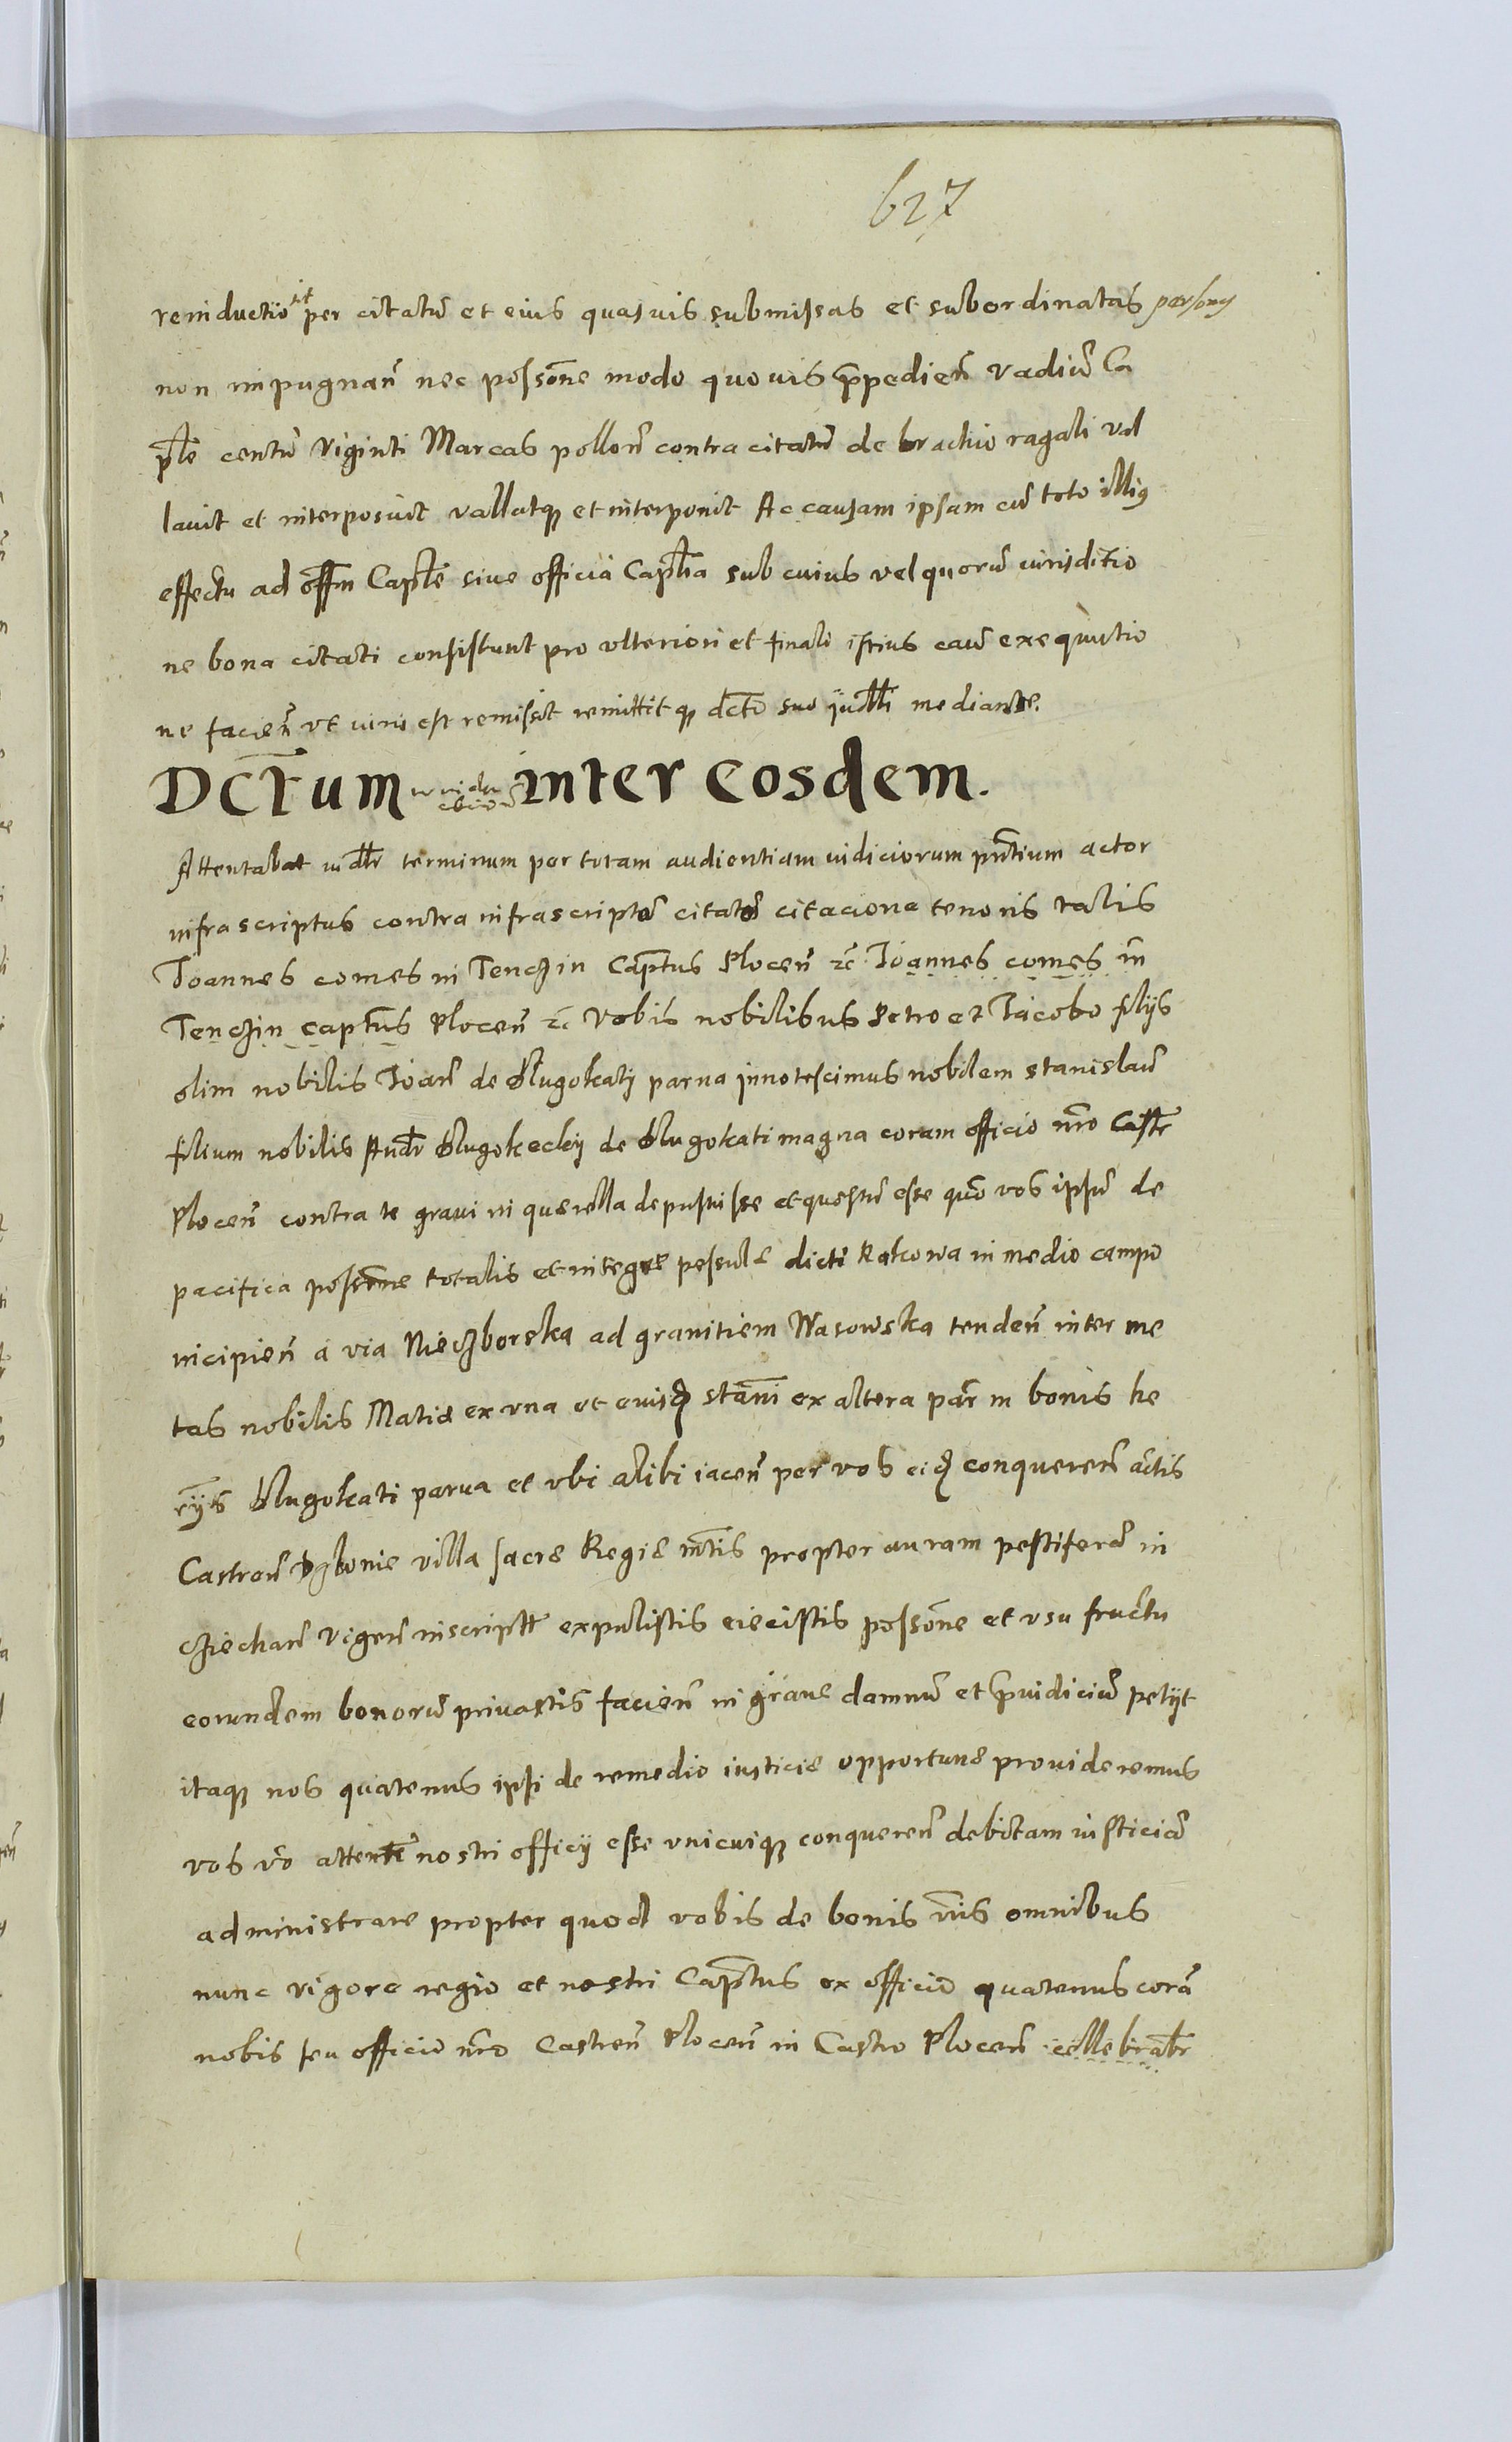 627
reinductio it per citatũ et eius quasuis submissas et subordinatas personas
non impugnañ nec possõne modo quouis p̃pediẽn vadiũ Ca
p̃le centũ viginti Marcas polloñ contra citatũ de brachio ragali val
lauit et interposuit vallatqꝫ et interponit Ac causam ipsam cũ toto illius
effectu ad offm̃ Capt̃le siue officia Capt̃lia sub cuius vel quorũ iurisditio
ne bona citati consistunt pro vlteriori et finali istius caũ exequutio
ne facieñ vt iuris est remisit remittitqꝫ dc̃to suo iudl̃i mediante.
Dc̃tum inter eosdem.
Attentabat iudl̃r terminum per totam audientiam iudiciorum pñtium actor
infrascriptus contra infrascriptos citatos citacione tenoris talis
Joannes comes in Tenczin Capt̃us Ploceñ ꝛc̃ Joannes comes in
Tenczin capt̃us Ploceñ ꝛc̃ Vobis nobilibus Petro et Jacobo filijs
olim nobilis Joañ de Dlugokati parua innotescimus nobilem stanislaũ
filium nobilis Andr̃ Dlugokeckij de Dlugokati magna coram officio nr̃o Castr̃
Ploceñ contra te graui in querella depusuisse et questũ esse quõ vos ipsũ de
pacifica possõne totalis et integre pessule dicti Rakowa in medio campo
incipieñ a via Nieczborska ad granitiem Wasowska tendeñ inter me
tas nobilis Matie ex vna et eiusdꝫ stañi ex altera par̃ in bonis he
rijs̃ Dlugokati parua et vbi alibi iaceñ per vos eidꝫ conquereñ actis
Castreñ villa sacre Regie mt̃is propter auram pestiferã in
Cziechañ vigeñ inscript̃ expulistis eiecistis possõne et vsu fructu
eorundem bonorũ priuastis facieñ in graue damnũ et p̃iudiciũ petijt
itaqꝫ nos quatenus ipsi de remedio iusticie opportune prouideremus
vos ṽo attenteñ nostri officij esse vnicuiqꝫ conquereñ debitam iusticiã
administrare propter quod vobis de bonis vr̃is omnibus
nunc vigore regio et nostri Capt̃us ex officio quatenus corã
nobis seu officio nr̃o Castreñ Ploceñ in Castro Ploceñ cellebrabr̃